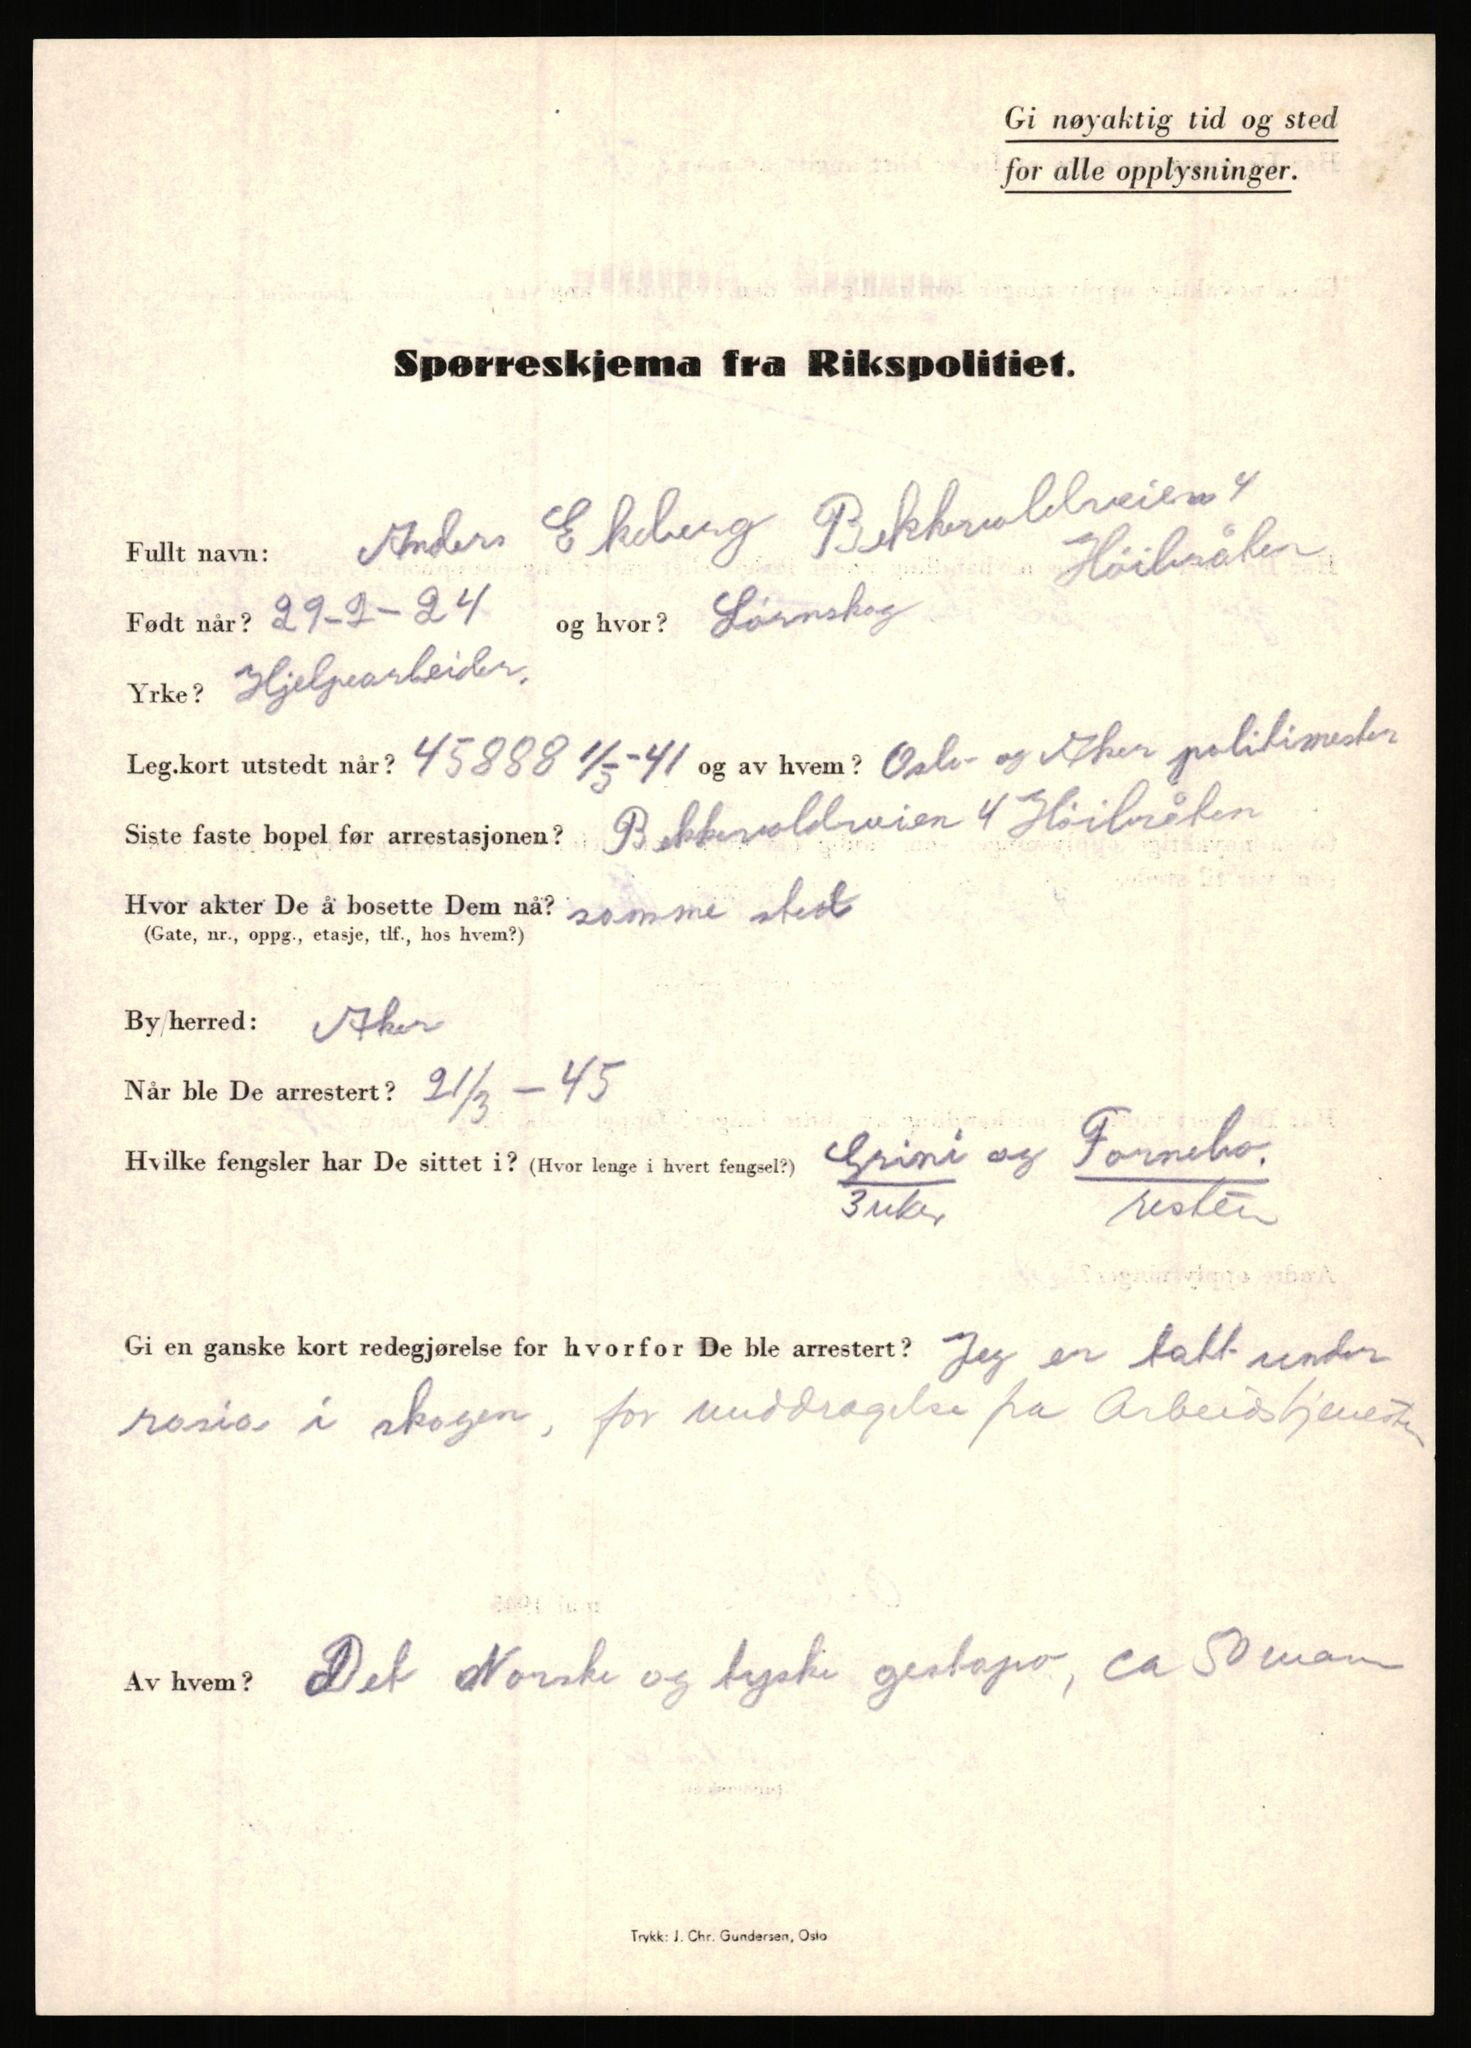 Gi nøyaktig tid og sted
for alle opplysninger.
Spørreskjema fra Rikspolitiet.
Fullt navn: Anders Ekeberg Bekkevoldveien 4
Høibråten
Født når? 29-2-24 og hvor? Lørnskog
Yrke? Hjelpearbeider.
Leg.kort utstedt når? 45888 1/5-41 og av hvem? Oslo og Aker politimester
Siste faste bopel før arrestasjonen? Bekkevoldveien 4 Høibråten
Hvor akter De å bosette Dem nå? samme sted
(Gate, nr., oppg., etasje, tlf., hos hvem?)
By/herred: Aker
Når ble De arrestert? 21/3-45
Hvilke fengsler har De sittet i? (Hvor lenge i hvert fengsel?) Grini og Fornebo.
3 uker resten
Gi en ganske kort redegjørelse for hvorfor De ble arrestert? Jeg er tatt under
rasia i skogen, for unddragelse fra Arbeidstjenesten
Av hvem? Det Norske og tyske gestapo, ca 50 mann
Trykk: J. Chr. Gundersen, Oslo